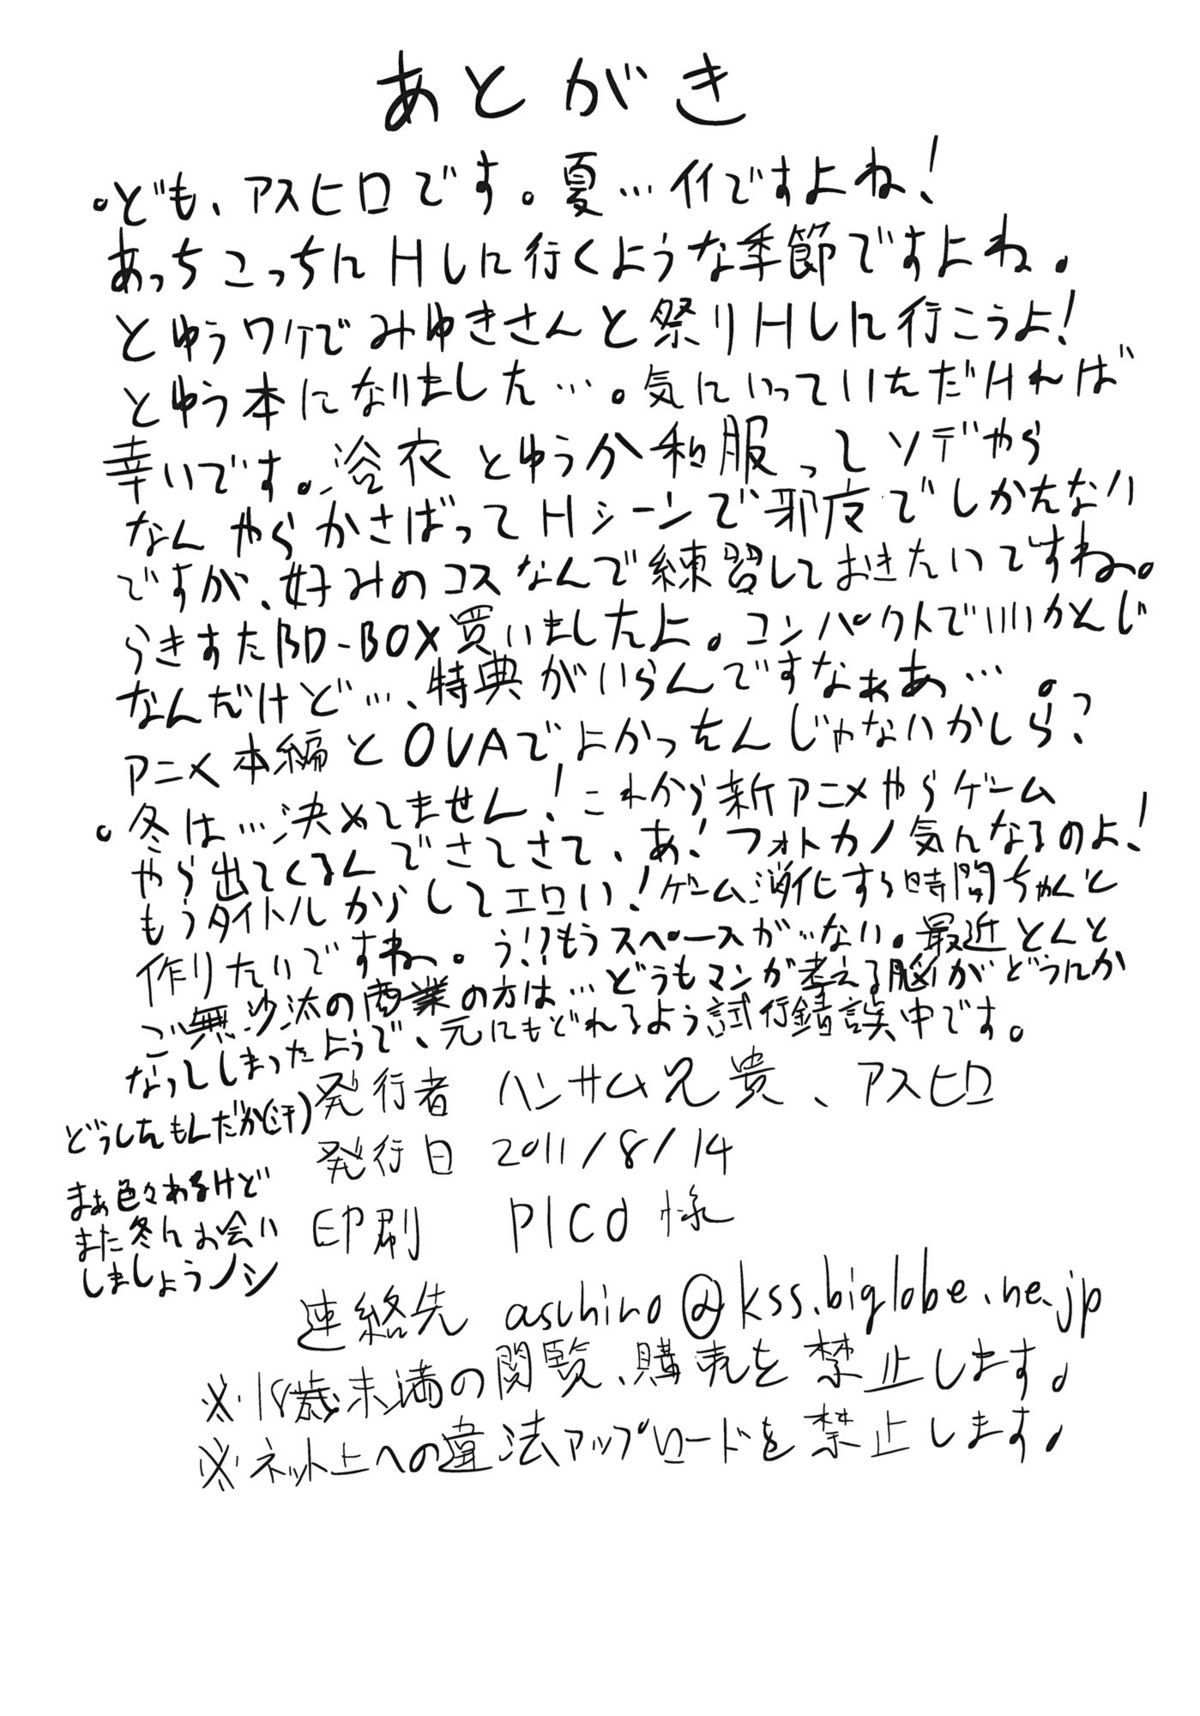 あとがき
。ども、アスヒロです。夏…イイですよね!
あっちこっちにHしに行くような季節ですよね。
とゆうワケでみゆきさんと祭りHしに行こうよ!
とゆう本になりました…。気にいっていただければ
幸いです。浴衣とゆうか和服ってソデやら
なんやらかさばってHシーンで邪魔でしかたない
ですが、好みのコスなんで練習しておきたいですね。
らきすたBD-BOX買いましたよ。コンパクトでいいかんじ
なんだけど…、特典がいらんですなぁあ…。
アニメ本編とOVAでよかったんじゃないかしら?
。冬は…決めてません!これから新アニメやらゲーム
やら出てくるんでさてさて、あ!フォトカノ気になるのよ!
もうタイトルからしてエロい!ゲーム消化する時間ちゃんと
作りたいですね。う!?もうスペースが…ない。最近とんと
ご無沙汰の商業の方は…どうもマンガ考える脳がどうにか
なってしまったようで、元にもどれるよう試行錯誤中です。
どうしたもんだか(汗)
まぁ色々あるけど
また冬にお会い
しましょうノシ
発行者 ハンサム兄貴、アスヒロ
発行日 2011/8/14
印刷 PICO様
連絡先 asuhiro@kss.biglobe.ne.jp
※18歳未満の閲覧、購売を禁止します。
※ネット上への違法アップロードを禁止します。